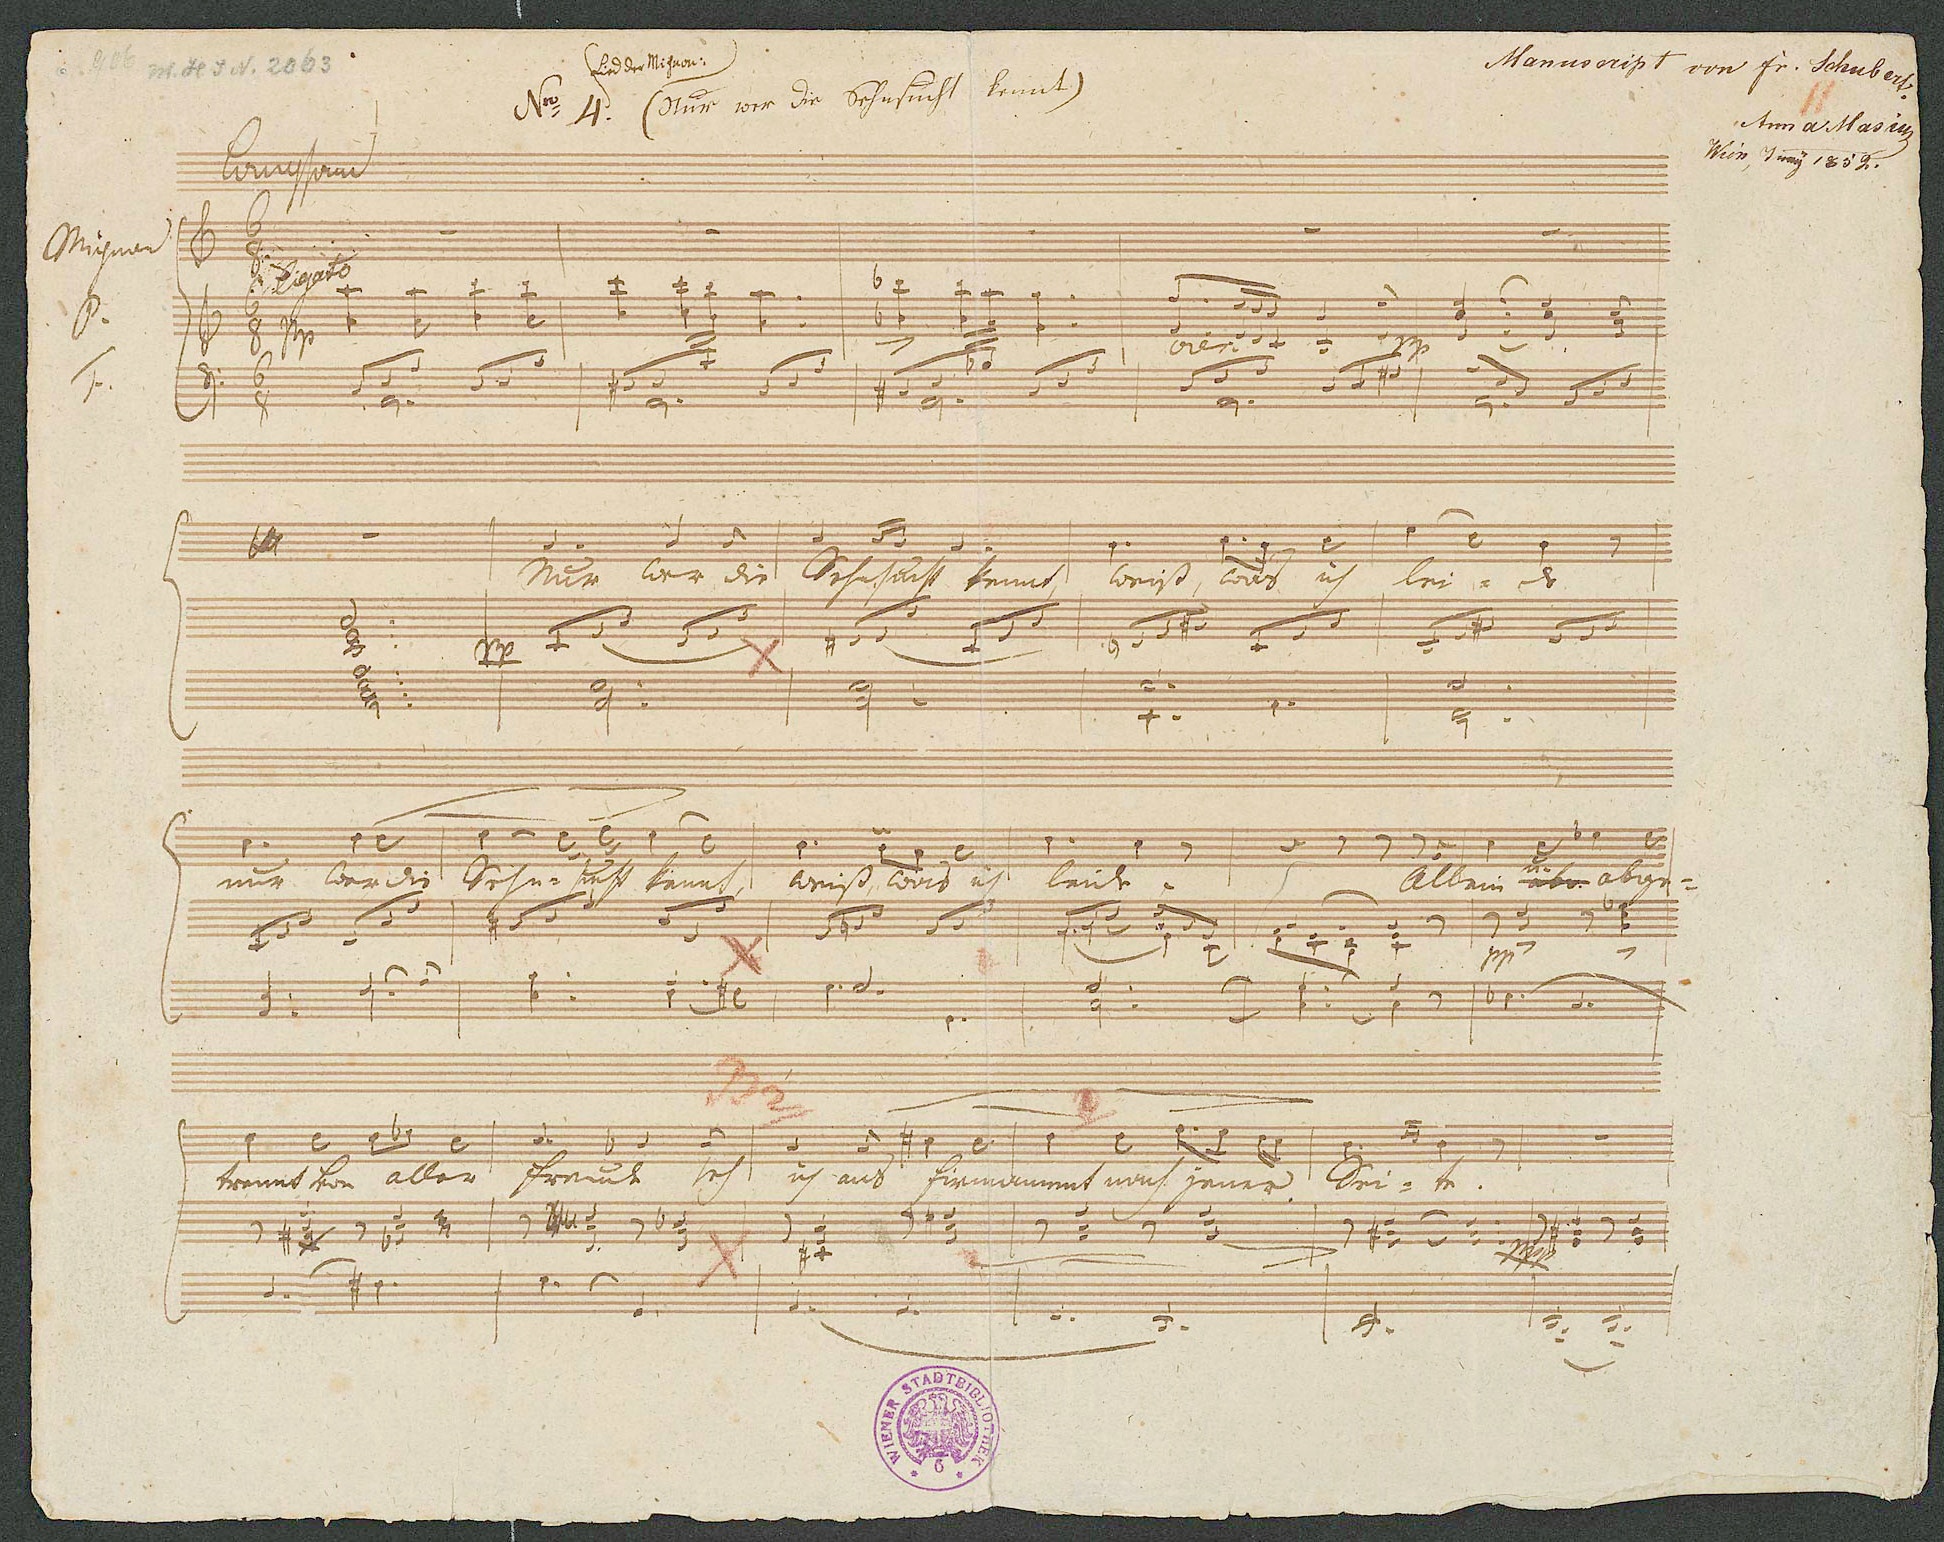 M. H I N. 2063
Lied der Mignon:
Nro 4. (Nur wer die Sehnsucht kennt)
Manuscript von Fr. Schubert.
11
Anna
Wien, Juny 1852.
Langsam
Mignon
Ligato
P.
F.
pp
cres.
pp
Nur wer die Sehnsucht kennt, weiß, was ich lei - de
pp
nur wer die Sehn - sucht kennt, weiß, was ich leide. Allein u. abge =
pp
trennt von aller Freude seh ich ans Firmament nach jener Sei - te.
ppp
WIENER STADTBIBLIOTHEK
6